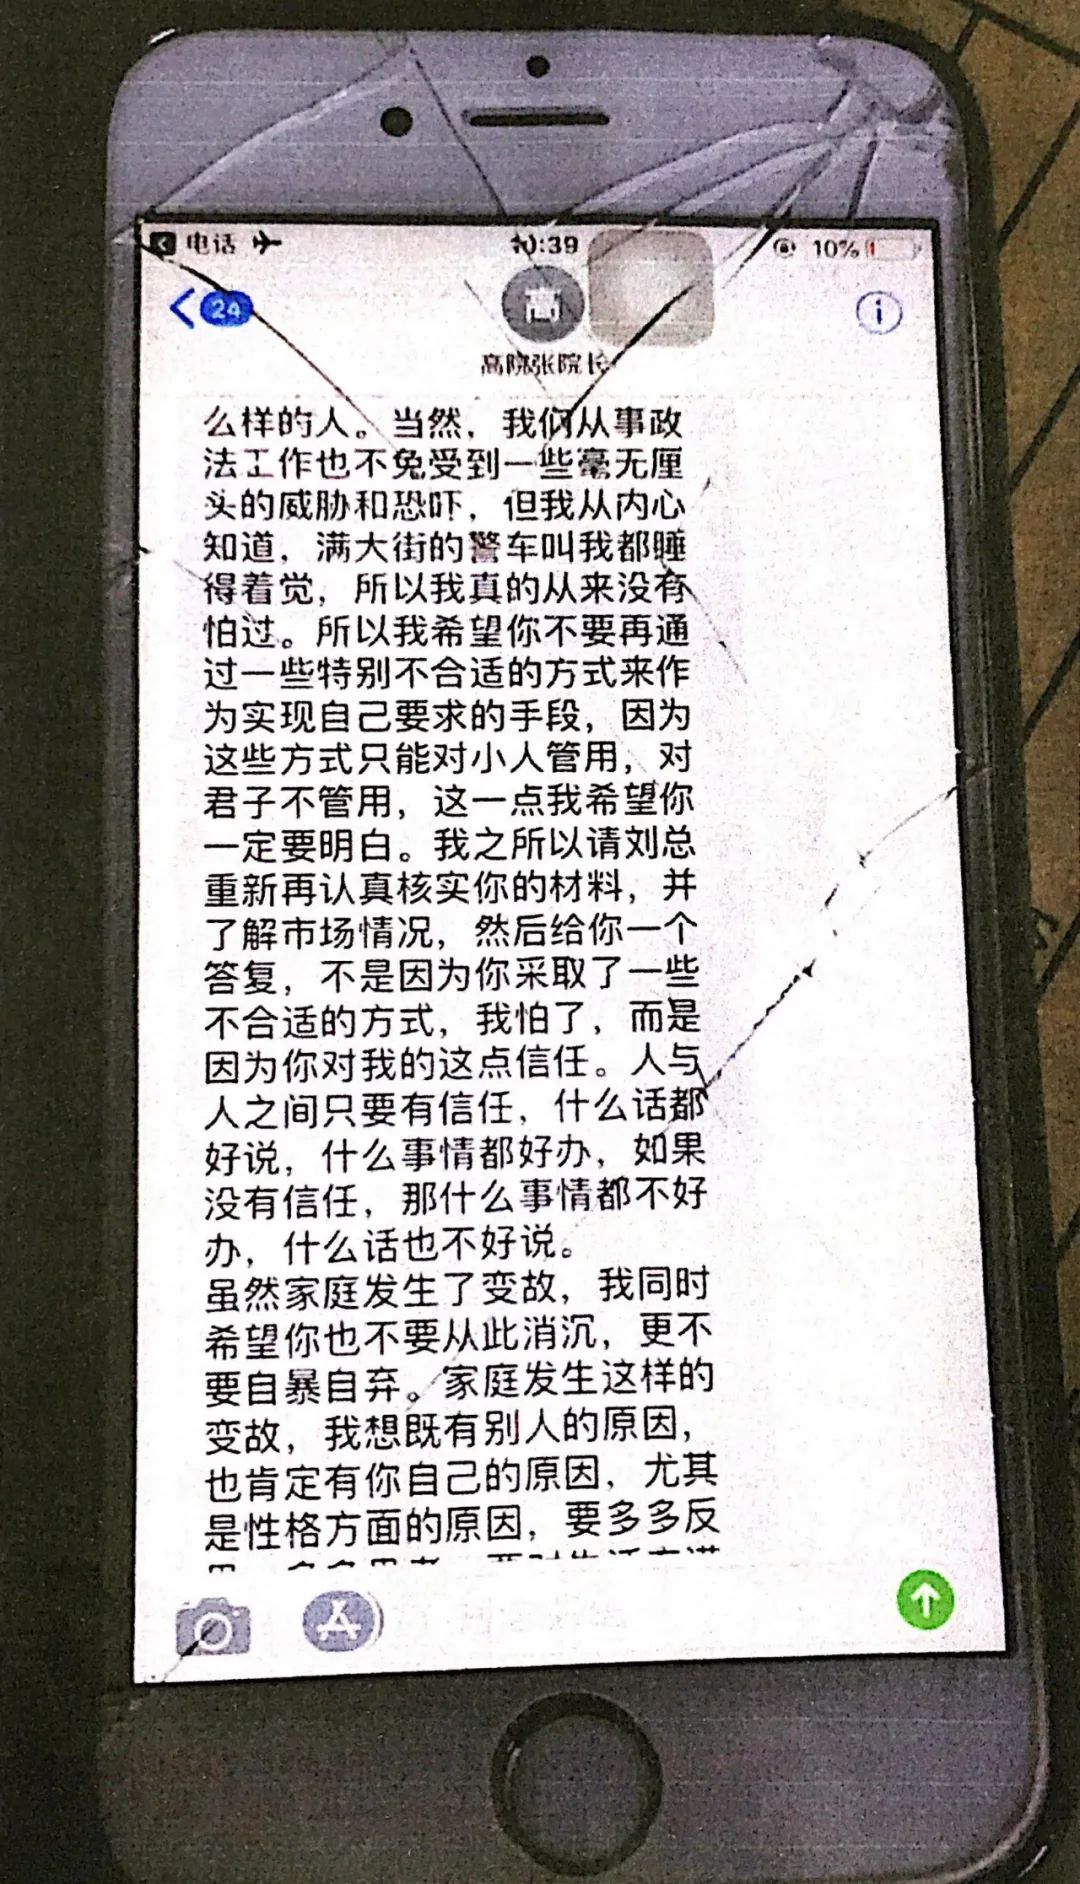 电话
10:39
10%
24
高
高院张院长
么样的人。当然，我们从事政
法工作也不免受到一些毫无厘
头的威胁和恐吓，但我从内心
知道，满大街的警车叫我都睡
得着觉，所以我真的从来没有
怕过。所以我希望你不要再通
过一些特别不合适的方式来作
为实现自己要求的手段，因为
这些方式只能对小人管用，对
君子不管用，这一点我希望你
一定要明白。我之所以请刘总
重新再认真核实你的材料，并
了解市场情况，然后给你一个
答复，不是因为你采取了一些
不合适的方式，我怕了，而是
因为你对我的这点信任。人与
人之间只要有信任，什么话都
好说，什么事情都好办，如果
没有信任，那什么事情都不好
办，什么话也不好说。
虽然家庭发生了变故，我同时
希望你也不要从此消沉，更不
要自暴自弃。家庭发生这样的
变故，我想既有别人的原因，
也肯定有你自己的原因，尤其
是性格方面的原因，要多多反